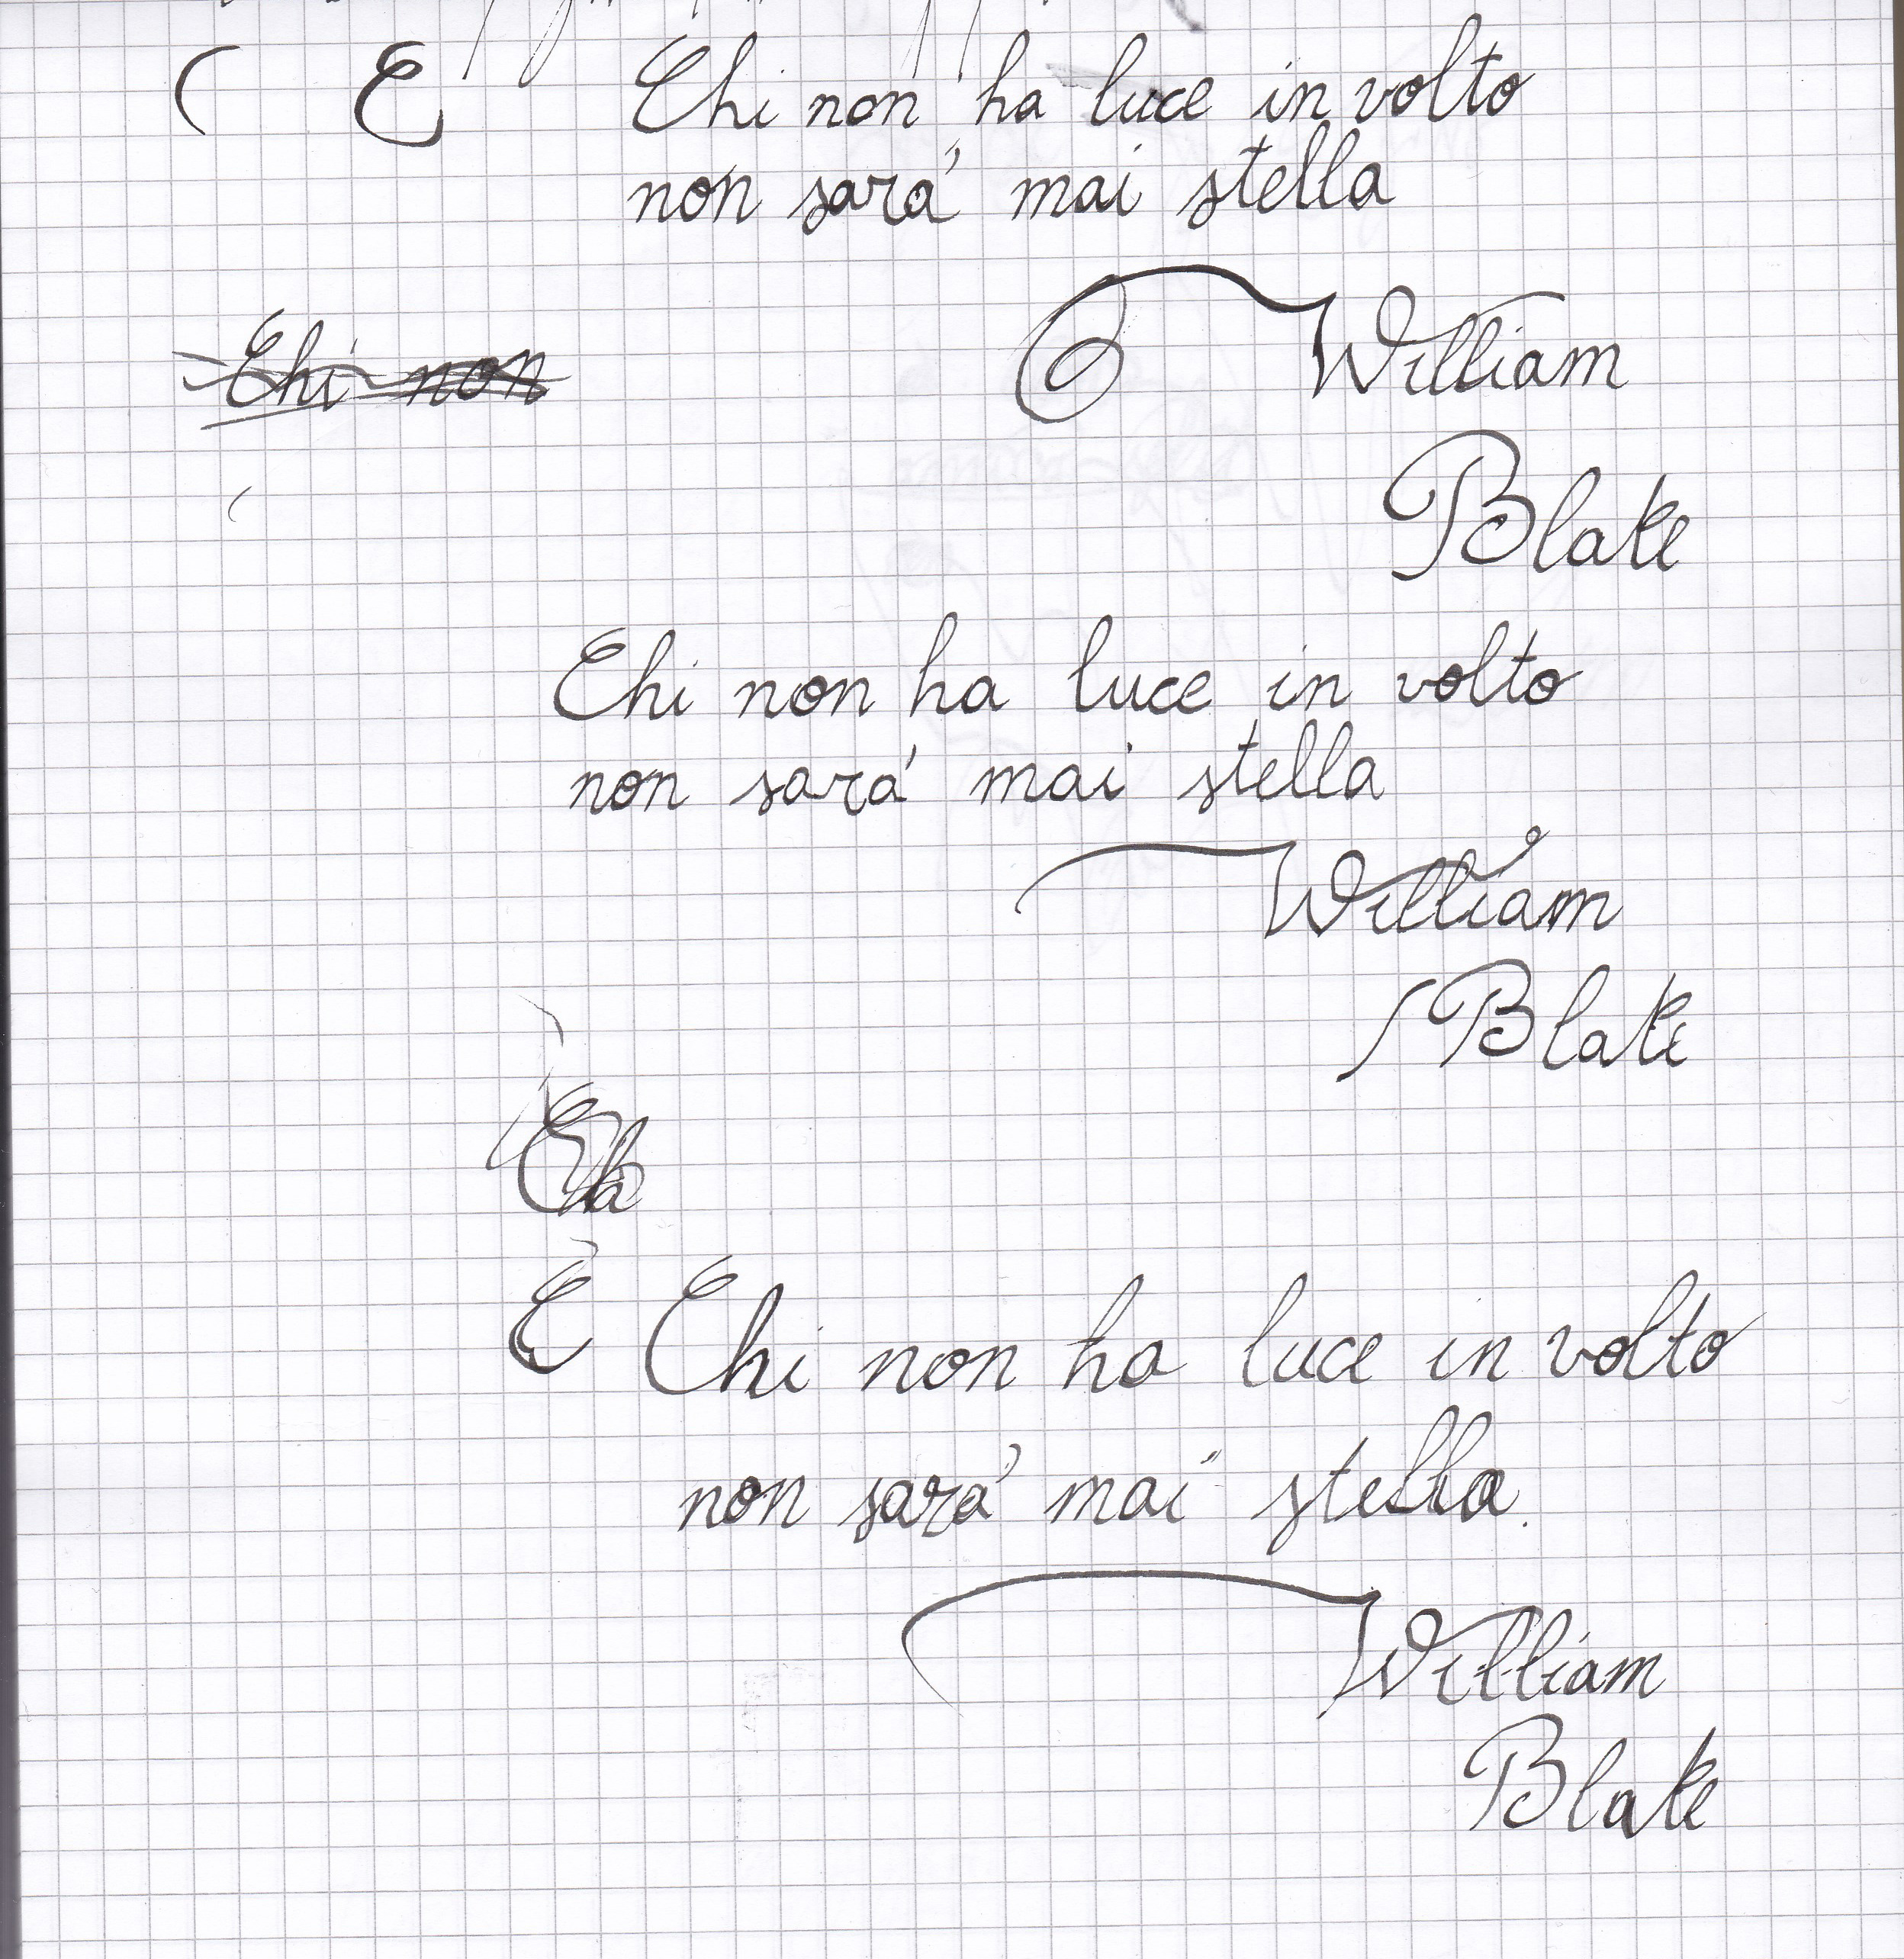 ( E Chi non ha luce in volto
non sará mai stella
William
Chi non
Blake
Chi non ha luce in volto
non sará mai stella
William
Blake
Ch
C Chi non ha luce in volto
non sará mai stella.
William
Blake